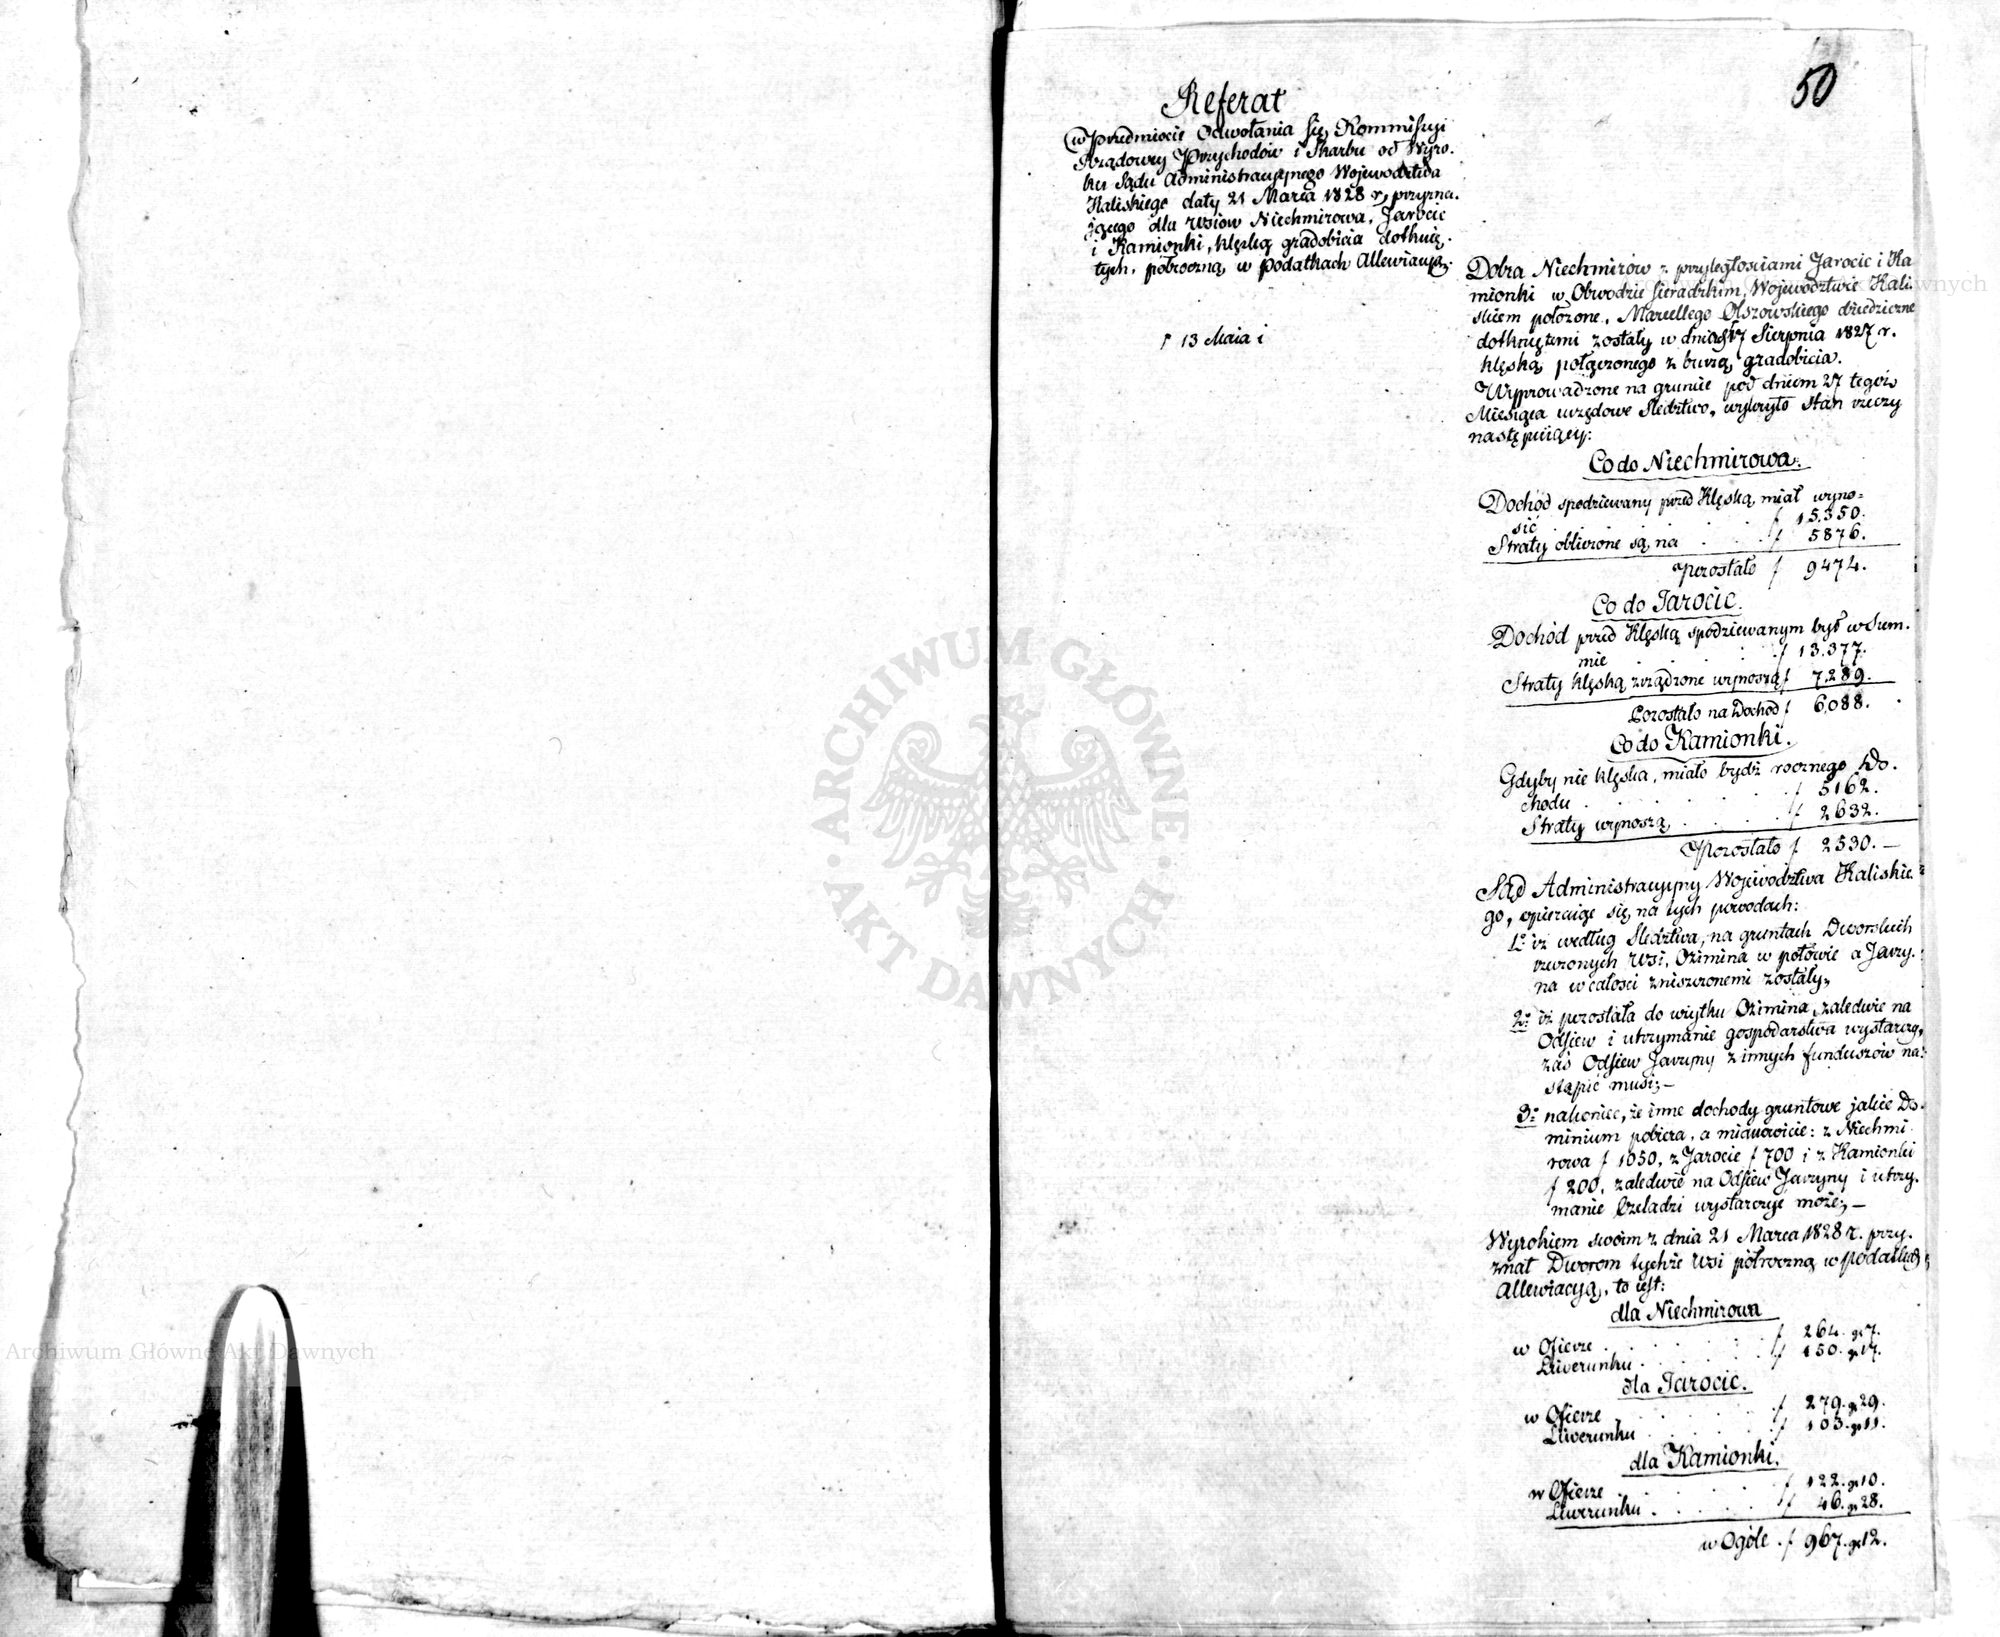 50
Referat
w Przedmiocie Odwołania się Kommissyi
Rządowey Przychodów i Skarbu od Wyro-
ku Sądu Administracyjnego Województwa
Kaliskiego daty 21 Marca 1828 r, przyzna-
jącego dla wsiów Niechmirowa, Jarocic
i Kamionki, klęską gradobicia dotknię-
tych, półroczną w podatkach Allewiacyą.
13 Maia
Dobra Niechmirów z przyległościami Jarocic i Ka
mionki w Obwodzie Sieradzkim, Województwie Kali-
skiem położone, Marcellego Olszowskiego dziedziczne
dotkniętemi zostały w dniach 17 Sierpnia 1827 r.
klęską połączonego z burzą gradobicia.
Wyprowadzone na gruncie pod dniem 27 tegoż
Miesiąca urzędowe Śledztwo, wykryło stan rzeczy
następuiący:
Co do Niechmirowa:
Dochód spodziewany przed Klęską miał wyno=
sić . . . f 15,350.
Straty obliczone są na . . . f 5876.
Pozostało f 9474.
Co do Jarocic.
Dochód przed Klęską spodziewanym był w Sum-
mie . . . f 13.377.
Straty klęską zrządzone wynoszą f 7,289.
Pozostało na Dochod f 6,088.
Co do Kamionki.
Gdyby nie klęska, miało bydź rocznego Do-
chodu . . . f 5162.
Straty wynoszą . . . f 2632.
Pozostało f 2530. —
Sąd Administracyjny Województwa Kaliskie=
go, opieraiąc się na tych powodach:
1o iż według Śledztwa, na gruntach Dworskich
rzeczonych wsi, Ozimina w połowie a Jarzy-
na w całości zniszczonemi zostały,
2o iż pozostała do użytku Ozimina, zaledwie na
Odsiew i utrzymanie gospodarstwa wystarczy,
zaś Odsiew Jarzyny z innych funduszów na-
stąpić musi; —
3o nakoniec, że inne dochody gruntowe jakie Do-
minium pobiera, a mianowicie: z Niechmi-
rowa f 1050, z Jarocic f 700 i z Kamionki
f 200, zaledwie na Odsiew Jarzyny i utrzy-
manie Czeladzi wystarczyć może; —
Wyrokiem swoim z dnia 21 Marca 1828 r. przy-
znał Dworom tychże wsi półroczną w podatkach
Allewiacyą, to iest:
dla Niechmirowa
w Ofierze . . . f 264. gr 7.
Liwerunku . . . f 150. gr 17.
dla Jarocic.
w Ofierze . . . f 279. gr 29.
Liwerunku . . . f 103. gr 11.
dla Kamionki.
w Ofierze . . . f 122. gr 10.
Liwerunku . . . f 46. gr 28.
w Ogóle . f 967. gr 12.
ARCHIWUM GŁÓWNE
AKT DAWNYCH
Archiwum Główne Akt Dawnych
Archiwum Główne Akt Dawnych